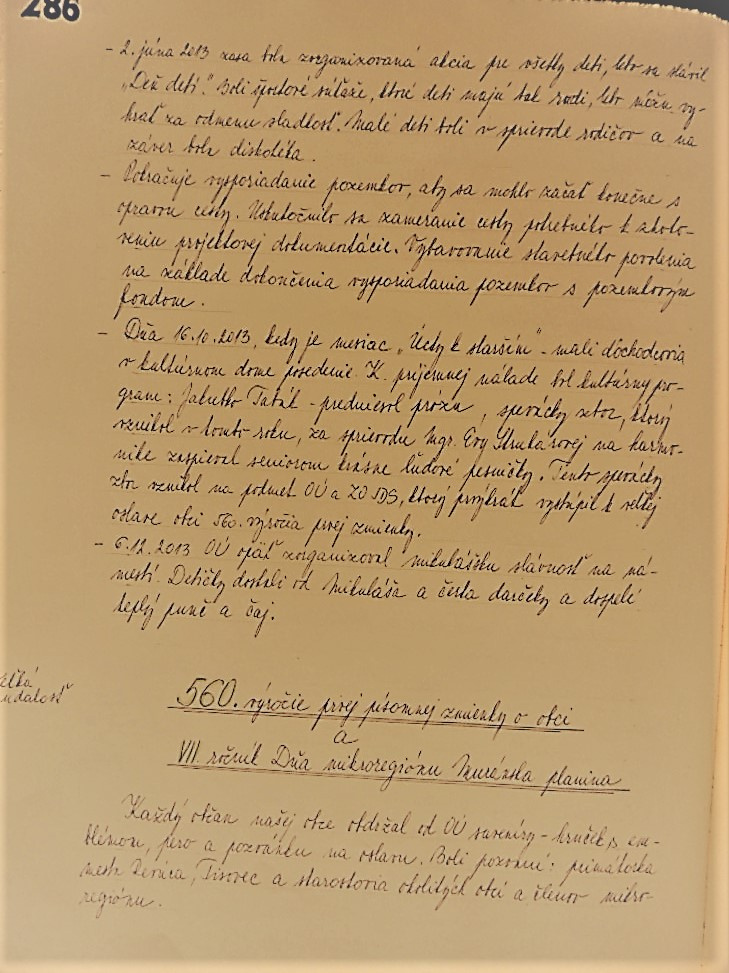 286
- 2. júna 2013 zasa bola zorganizovaná akcia pre všetky deti, kto sa slávil
"Deň detí". Boli športové súťaže, ktoré deti majú tak rodi, lebo môžu vy-
hrať za odmenu sladkosť. Malé deti boli v sprievode rodičov a na
záver bola diskotéka.
- Pokračuje vysporiadanie pozemkov, aby sa mohlo začať konečne s
opravou cesty. Uskutočnilo sa zameranie cesty potrebného k zhoto-
veniu projektovej dokumentácie. Vybavovanie stavebného povolenia
na základe dokončenia vysporiadania pozemkov s pozemkovým
fondom.
- Dňa 16.10.2013, kedy je mesiac "Úcty k starším" - mali dôchodcovia
v kultúrnom dome posedenie. K príjemnej nálade bol kultúrny pro-
gram: Jakubko Taták - predniesol prózu, spevácky zbor, ktorý
vznikol v tomto roku, za sprievodu Mgr. Evy Strukárovej na harmo-
nike zaspieval seniorom krásne ľudové pesničky. Tento spevácky
zbor vznikol na podnet OÚ a ZO JDS, ktorý prvýkrát vystúpil k veľkej
oslave obci 560. výročia prvej zmienky.
- 6.12.2013 OÚ opäť zorganizoval mikulášsku slávnosť na ná-
mestí. Detičky dostali od Mikuláša a čerta darčeky a dospelí
teplý punč a čaj.
eľká
udalosť
560. výročie prvej písomnej zmienky o obci
a
VII. ročník Dňa mikroregiónu Muránska planina
Každý občan našej obce obdržal od OÚ suveníry - hrnček s em-
blémom, pero a pozvánku na oslavu. Boli pozvaní: primátorka
mesta Revúca, Tisovec a starostovia okolitých obcí a členov mikro-
regiónu.